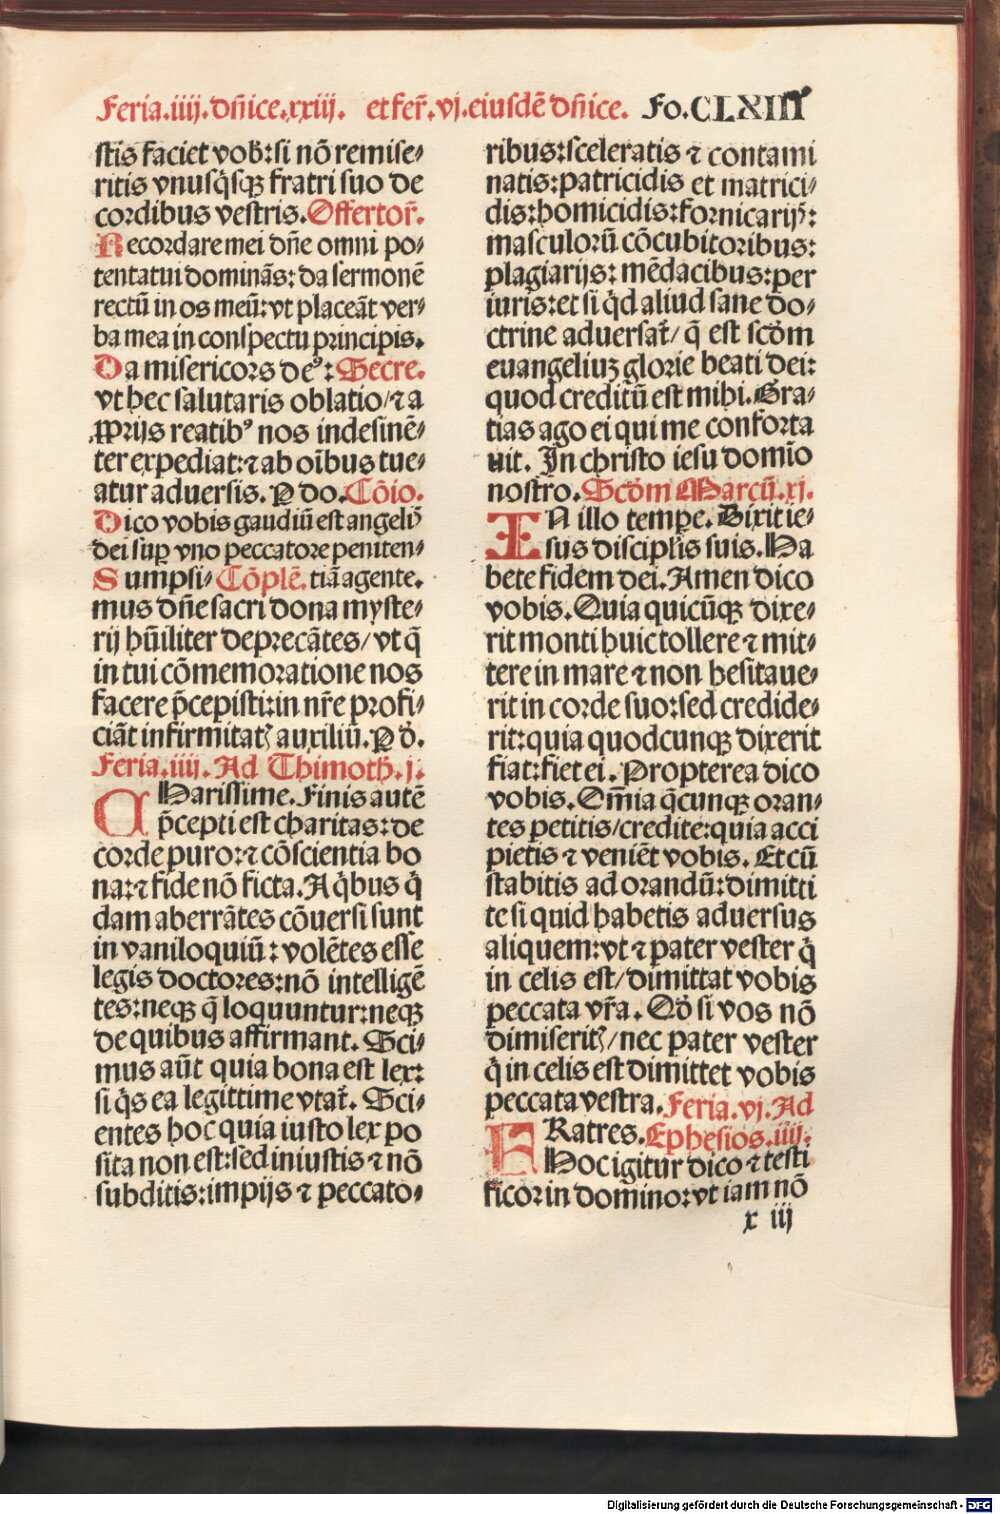 Feria.iiij.dñice.xxiij. et fer̃.vj.eiusdẽ dñice. Fo.CLXIII
stis faciet vob̾:si nõ remise⸗
ritis vnusq̃sqꝫ fratri suo de
cordibus vestris.Offertor̃.
Recordare mei dñe omni po⸗
tentatui dominãs:da sermonẽ
rectũ in os meũ:vt placeãt ver⸗
ba mea in conspectu principis.
Da misericors deꝰ:Secre.
vt hec salutaris oblatio/⁊ a
ꝓprijs reatibꝰ nos indesinẽ⸗
ter expediat:⁊ ab oĩbus tue⸗
atur aduersis.P do.Cõio.
Dico vobis gaudiũ est angelis
dei suꝑ vno peccatore peniten⸗
Sumpsi⸗ Cõplẽ. tiã agente.
mus dñe sacri dona myste⸗
rij hũiliter deprecãtes/vt q̃
in tui cõmemoratione nos
facere p̃cepisti:in nr̃e profi⸗
ciãt infirmitatꝭ auxiliũ.P d̾.
Feria.iiij.Ad Thimoth̾.j.
CHarissime.Finis autẽ
p̃cepti est charitas:de
corde puro:⁊ cõscientia bo
na:⁊ fide nõ ficta.A q̾bus q̾
dam aberrãtes cõuersi sunt
in vaniloquiũ:volẽtes esse
legis doctores:nõ intelligẽ
tes:neqꝫ q̃ loquuntur:neqꝫ
de quibus affirmant.Sci⸗
mus aũt quia bona est lex:
si q̾s ea legittime vtat̃.Sci⸗
entes hoc quia iusto lex po
sita non est:sed iniustis ⁊ nõ
subditis:impijs ⁊ peccato⸗
ribus:sceleratis ⁊ contami
natis:patricidis et matrici⸗
dis:homicidis:fornicarijs:
masculorũ cõcubitoribus:
plagiarijs:mẽdacibus:per
iuris:et si q̾d aliud sane do⸗
ctrine aduersat̃/q̃ est scd̾m
euangeliuꝫ glorie beati dei:
quod creditũ est mihi.Gra⸗
tias ago ei qui me conforta
uit. In christo iesu domĩo
nostro.Scd̾m Marcũ.xj.
IN illo temꝑe.Dixit ie⸗
sus discipl̾is suis.Ha
bete fidem dei.Amen dico
vobis.Quia quicũqꝫ dixe⸗
rit monti huic tollere ⁊ mit⸗
tere in mare ⁊ non hesitaue⸗
rit in corde suo:sed credide⸗
rit:quia quodcunqꝫ dixerit
fiat:fiet ei.Propterea dico
vobis.Om̃ia q̃cunqꝫ oran⸗
tes petitis/credite:quia acci
pietis ⁊ veniẽt vobis.Et cũ
stabitis ad orandũ:dimitti
te si quid habetis aduersus
aliquem:vt ⁊ pater vester q̾
in celis est/dimittat vobis
peccata vr̃a.Qd̾ si vos nõ
dimiseritꝭ/nec pater vester
q̾ in celis est dimittet vobis
peccata vestra.Feria.vj.Ad
FRatres.Ephesios.iiij.
Hoc igitur dico ⁊ testi
ficor in domino:vt iam nõ
x iij
Digitalisierung gefördert durch die Deutsche Forschungsgemeinschaft - DFG